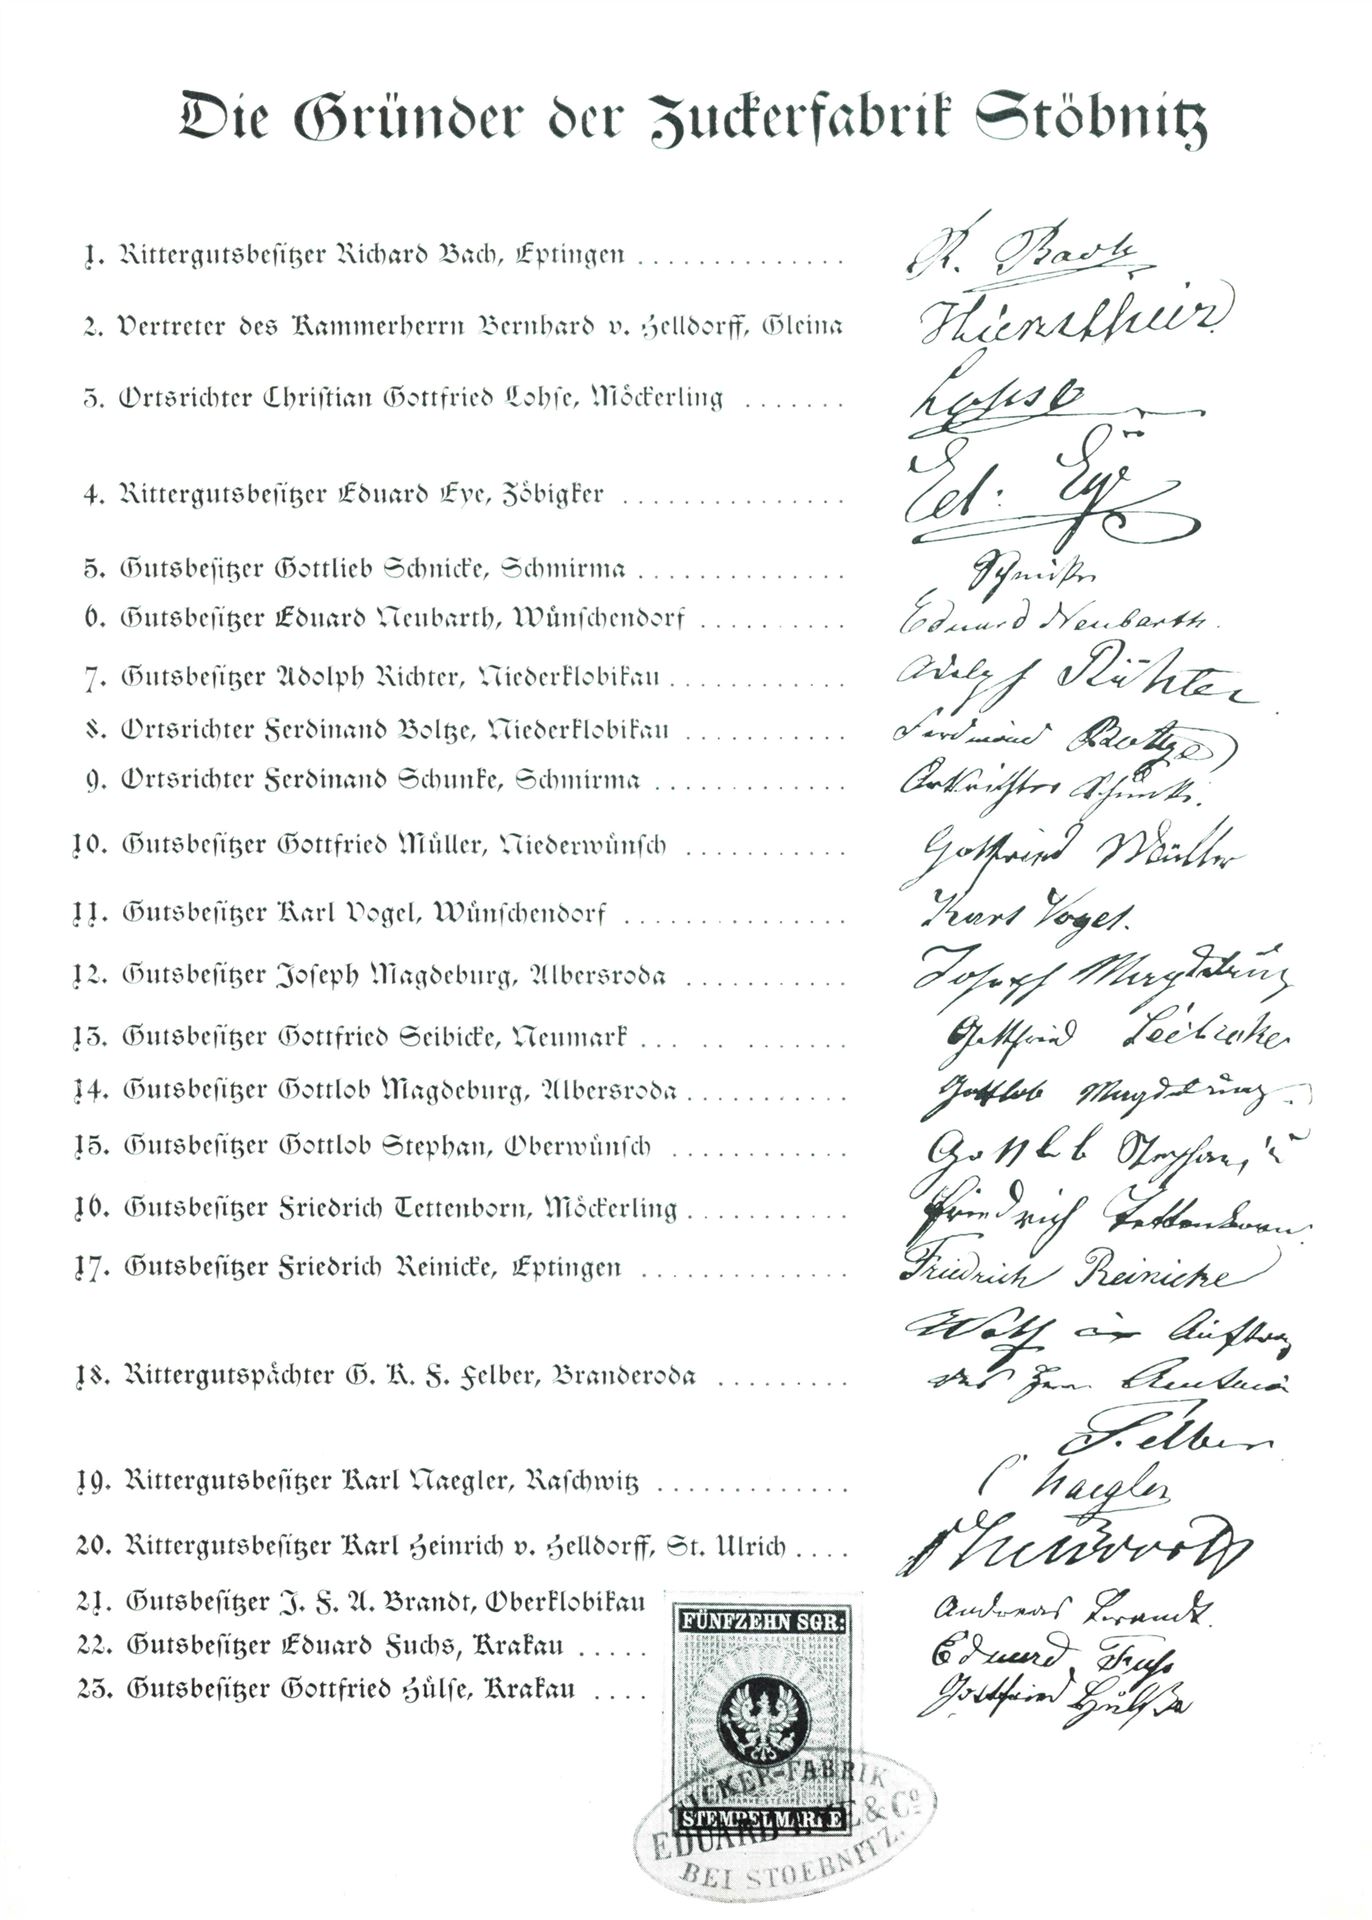 Die Gründer der Zuckerfabrik Stöbnitz
1. Rittergutsbesitzer Richard Bach, Eptingen . . . . . . . . . . . . . . R. Bach
2. Vertreter des Kammerherrn Bernhard v. Helldorff, Gleina
3. Ortsrichter Christian Gottfried Lohse, Möckerling . . . . . . . Lohse
4. Rittergutsbesitzer Eduard Eye, Zöbigker . . . . . . . . . . . . . . . Ed: Eye
5. Gutsbesitzer Gottlieb Schnicke, Schmirma . . . . . . . . . . . . . . Schnicke
6. Gutsbesitzer Eduard Neubarth, Wünschendorf . . . . . . . . . . Eduard Neubarth.
7. Gutsbesitzer Adolph Richter, Niederklobikau . . . . . . . . . . . . Adolph Richter
8. Ortsrichter Ferdinand Boltze, Niederklobikau . . . . . . . . . . . Ferdinand Boltze
9. Ortsrichter Ferdinand Schunke, Schmirma . . . . . . . . . . . . . Ortsrichter Schunke.
10. Gutsbesitzer Gottfried Müller, Niederwünsch . . . . . . . . . . . Gottfried Müller
11. Gutsbesitzer Karl Vogel, Wünschendorf . . . . . . . . . . . . . . . Karl Vogel.
12. Gutsbesitzer Joseph Magdeburg, Albersroda . . . . . . . . . . . Joseph Magdeburg
13. Gutsbesitzer Gottfried Seibicke, Neumark . . . . . . . . . . . . . Gottfried Seibicke
14. Gutsbesitzer Gottlob Magdeburg, Albersroda . . . . . . . . . . . Gottlob Magdeburg.
15. Gutsbesitzer Gottlob Stephan, Oberwünsch . . . . . . . . . . . . Gottlob Stephan
16. Gutsbesitzer Friedrich Tettenborn, Möckerling . . . . . . . . . . Friedrich Tettenborn.
17. Gutsbesitzer Friedrich Reinicke, Eptingen . . . . . . . . . . . . . . Friedrich Reinicke
im Auftrag
18. Rittergutspächter G. K. F. Felber, Branderoda . . . . . . . . . des Herrn
Felber
19. Rittergutsbesitzer Karl Naegler, Raschwitz . . . . . . . . . . . . . C Naegler
20. Rittergutsbesitzer Karl Heinrich v. Helldorff, St. Ulrich . . . .
21. Gutsbesitzer J. F. A. Brandt, Oberklobikau Andreas Brandt.
22. Gutsbesitzer Eduard Fuchs, Krakau . . . . . Eduard Fuchs
23. Gutsbesitzer Gottfried Hülse, Krakau . . . . Gottfried Hülße
FÜNFZEHN SGR:
STEMPELMARKE
ZUCKER-FABRIK
EDUARD EYE & Cº
BEI STOEBNITZ.